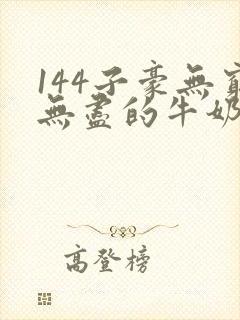 144子豪無窮
無盡的牛奶
高登榜